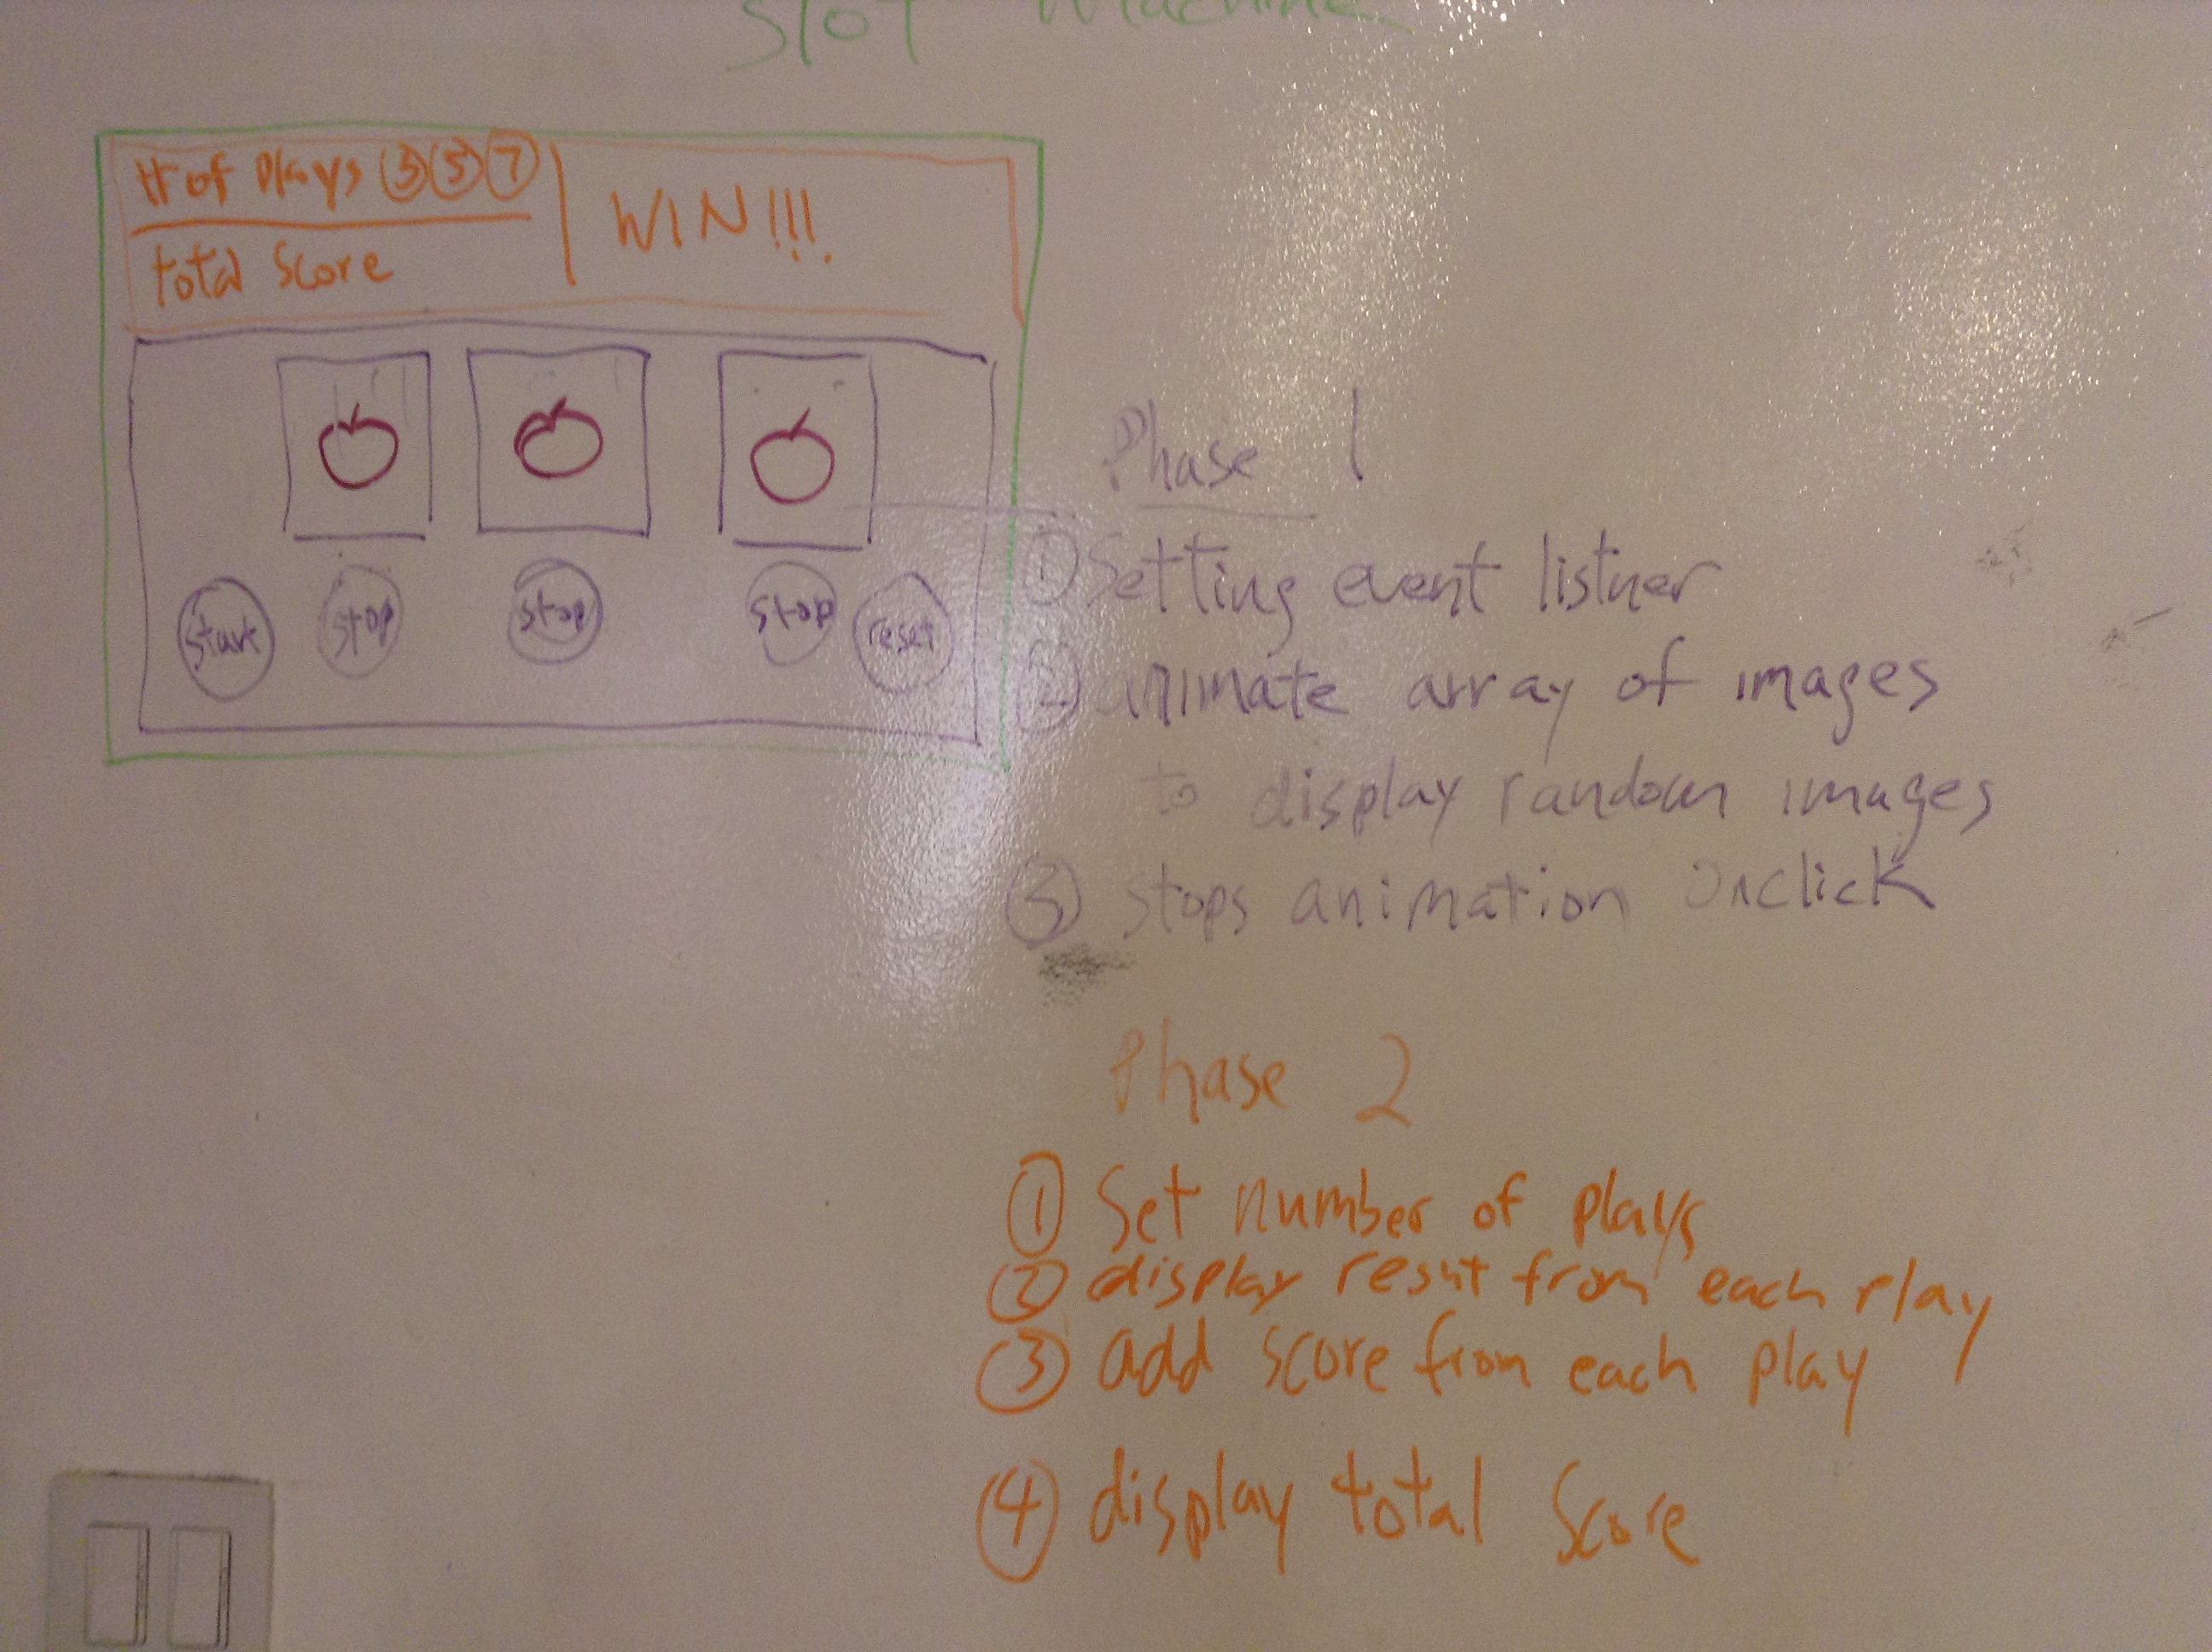 Slot Machine
# of Plays 3 5 7
WIN!!!
total Score
start
stop
stop
stop
reset
Phase 1
① Setting event listner
② animate array of images
to display random images
③ stops animation onclick
Phase 2
① Set number of plays
② display result from each play
③ add score from each play
④ display total Score